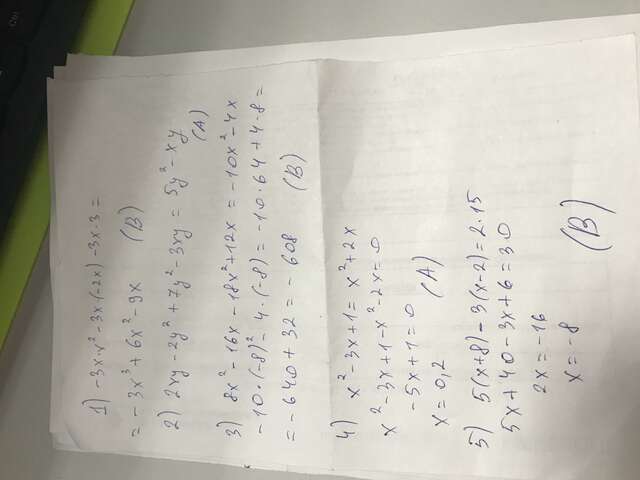 1) -3x·x²-3x·(-2x)-3x·3=
= -3x³+6x²-9x (B)
2) 2xy-2y²+7y²-3xy=5y²-xy
(A)
3) 8x²-16x-18x²+12x=-10x²-4x
-10·(-8)²=4·(-8)=-10·64+4·8=
= -640+32=-608 (B)
4) x²-3x+1=x²+2x
x²-3x+1-x²-2x=0
-5x+1=0
x=0,2 (A)
5) 5(x+8)-3(x-2)=2·15
5x+40-3x+6=30
2x=-16
x=-8
(B)